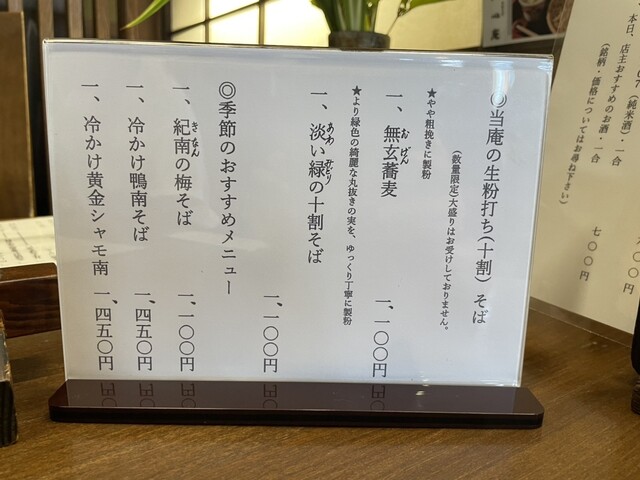 ◎当庵の生粉打ち(十割)そば
(数量限定)大盛りはお受けしておりません。
★やや粗挽きに製粉
一、無玄蕎麦 一、一〇〇円
おげん
★より緑色の綺麗な丸抜きの実を、ゆっくり丁寧に製粉
一、淡い緑の十割そば
あわ みどり
一、一〇〇円
◎季節のおすすめメニュー
一、紀南の梅そば 一、一〇〇円
きなん
一、冷かけ鴨南そば 一、四五〇円
一、冷かけ黄金シャモ南 一、四五〇円
(純米酒)・一合
本日、店主おすすめのお酒・一合
(銘柄・価格についてはお尋ね下さい)
七〇〇円